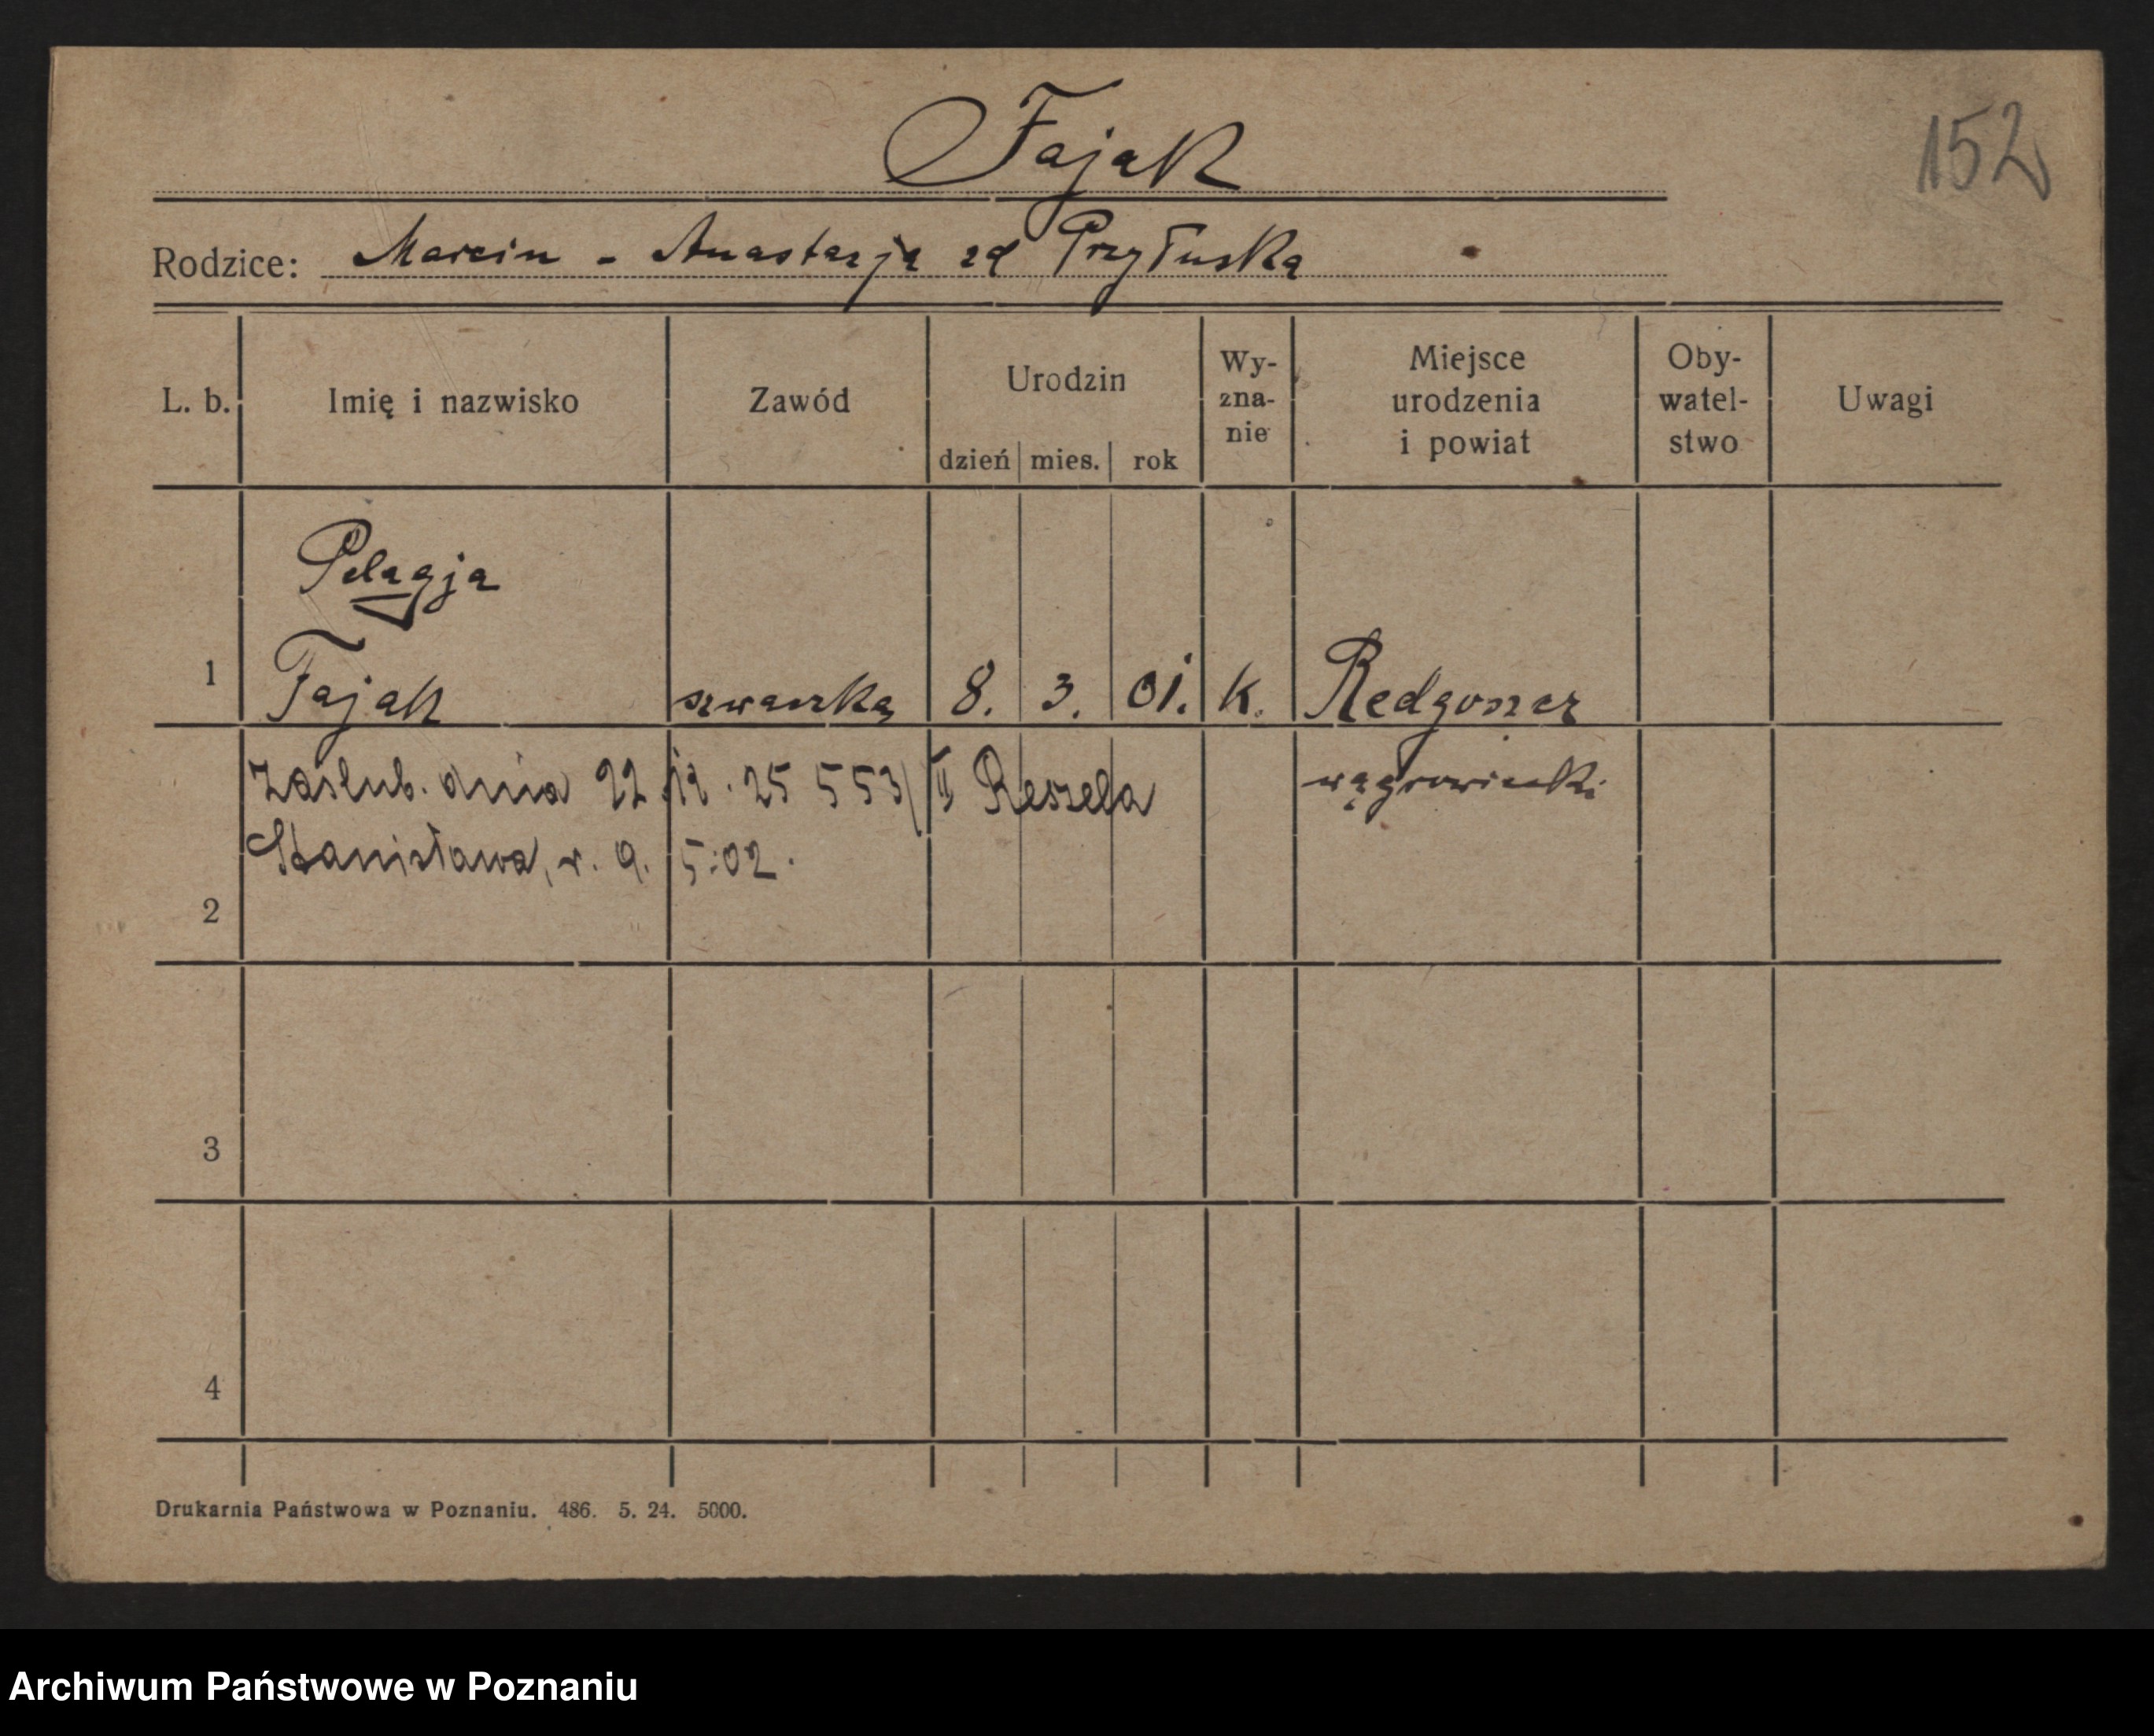 Fajak
152
Rodzice: Marcin - Anastazja zd Przyłuska
L. b. Imię i nazwisko Zawód Urodzin dzień mies. rok Wy-zna-nie Miejsce urodzenia i powiat Oby-watel-stwo Uwagi
Pelagja
1 Fajak szwaczka 8. 3. 01. k. Redgoszcz
Zaślub. dnia 22.12.25 553/II Reszela wągrowiecki
Stanisława, r. 9. 5.02.
2
3
4
Drukarnia Państwowa w Poznaniu. 486. 5. 24. 5000.
Archiwum Państwowe w Poznaniu